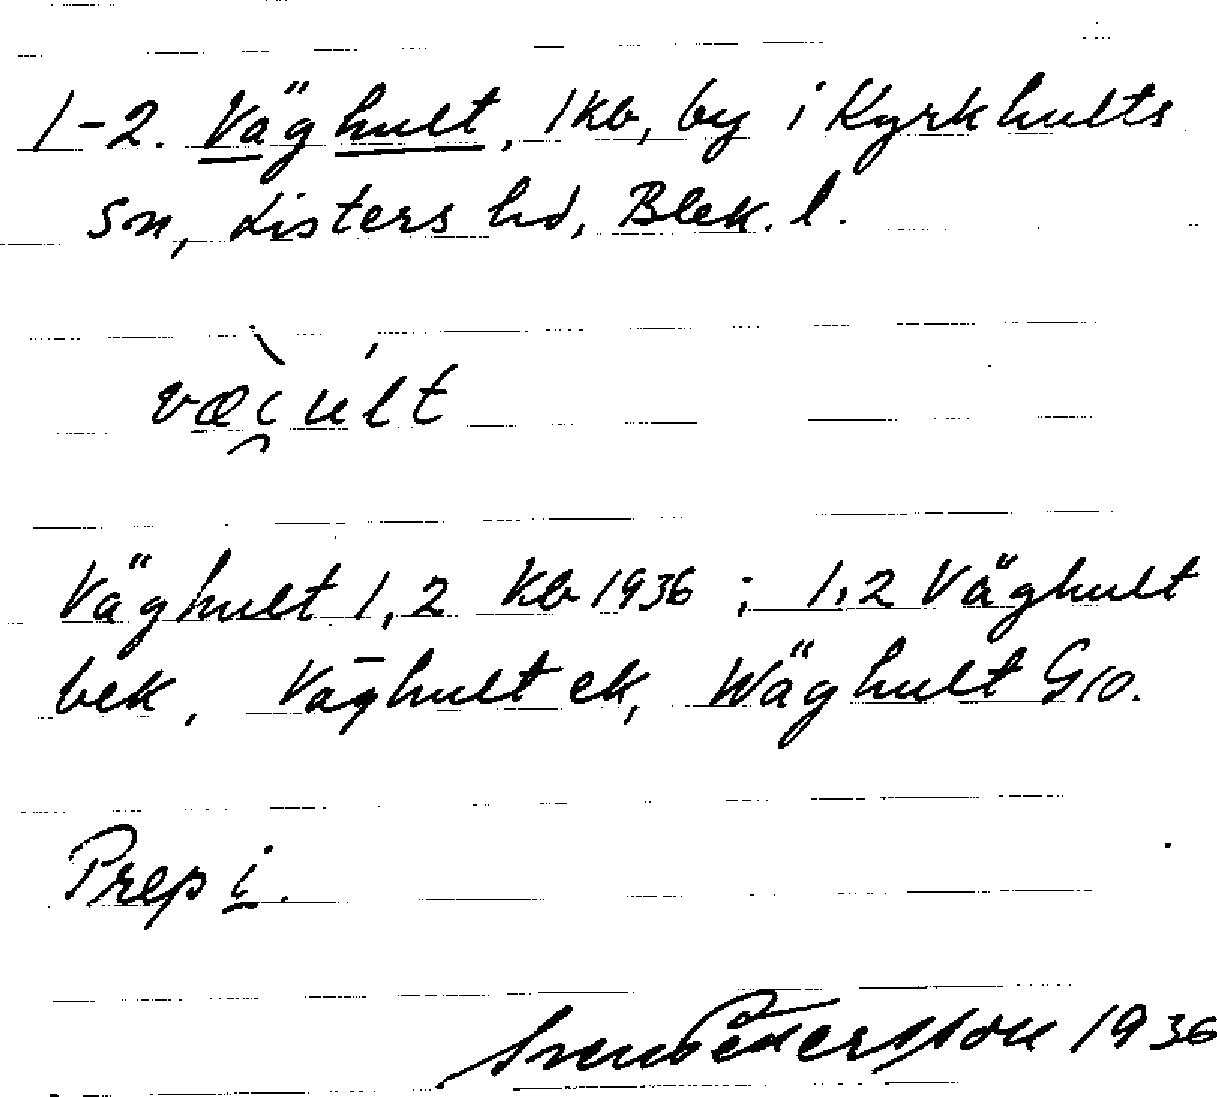 1-2. Väghult, 1 kb, by i Kyrkhults
sn, Listers hd, Blek. l.
væ̀i̯últ
Väghult 1,2 kb 1936 ; 1,2 Väghult
bek. Väghult ek, Wäghult G10.
Prep i.
Sven Pettersson 1936